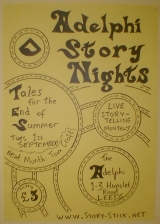 Adelphi
Story
Nights
Tales
for the
End of
Summer
Tues
SEPTEMBER
LIVE
STORY-
TELLING
MONTHLY
The
Adelphi
1-3 Hunslet
Road
LEEDS
£3
WWW.STORY-STICK.NET